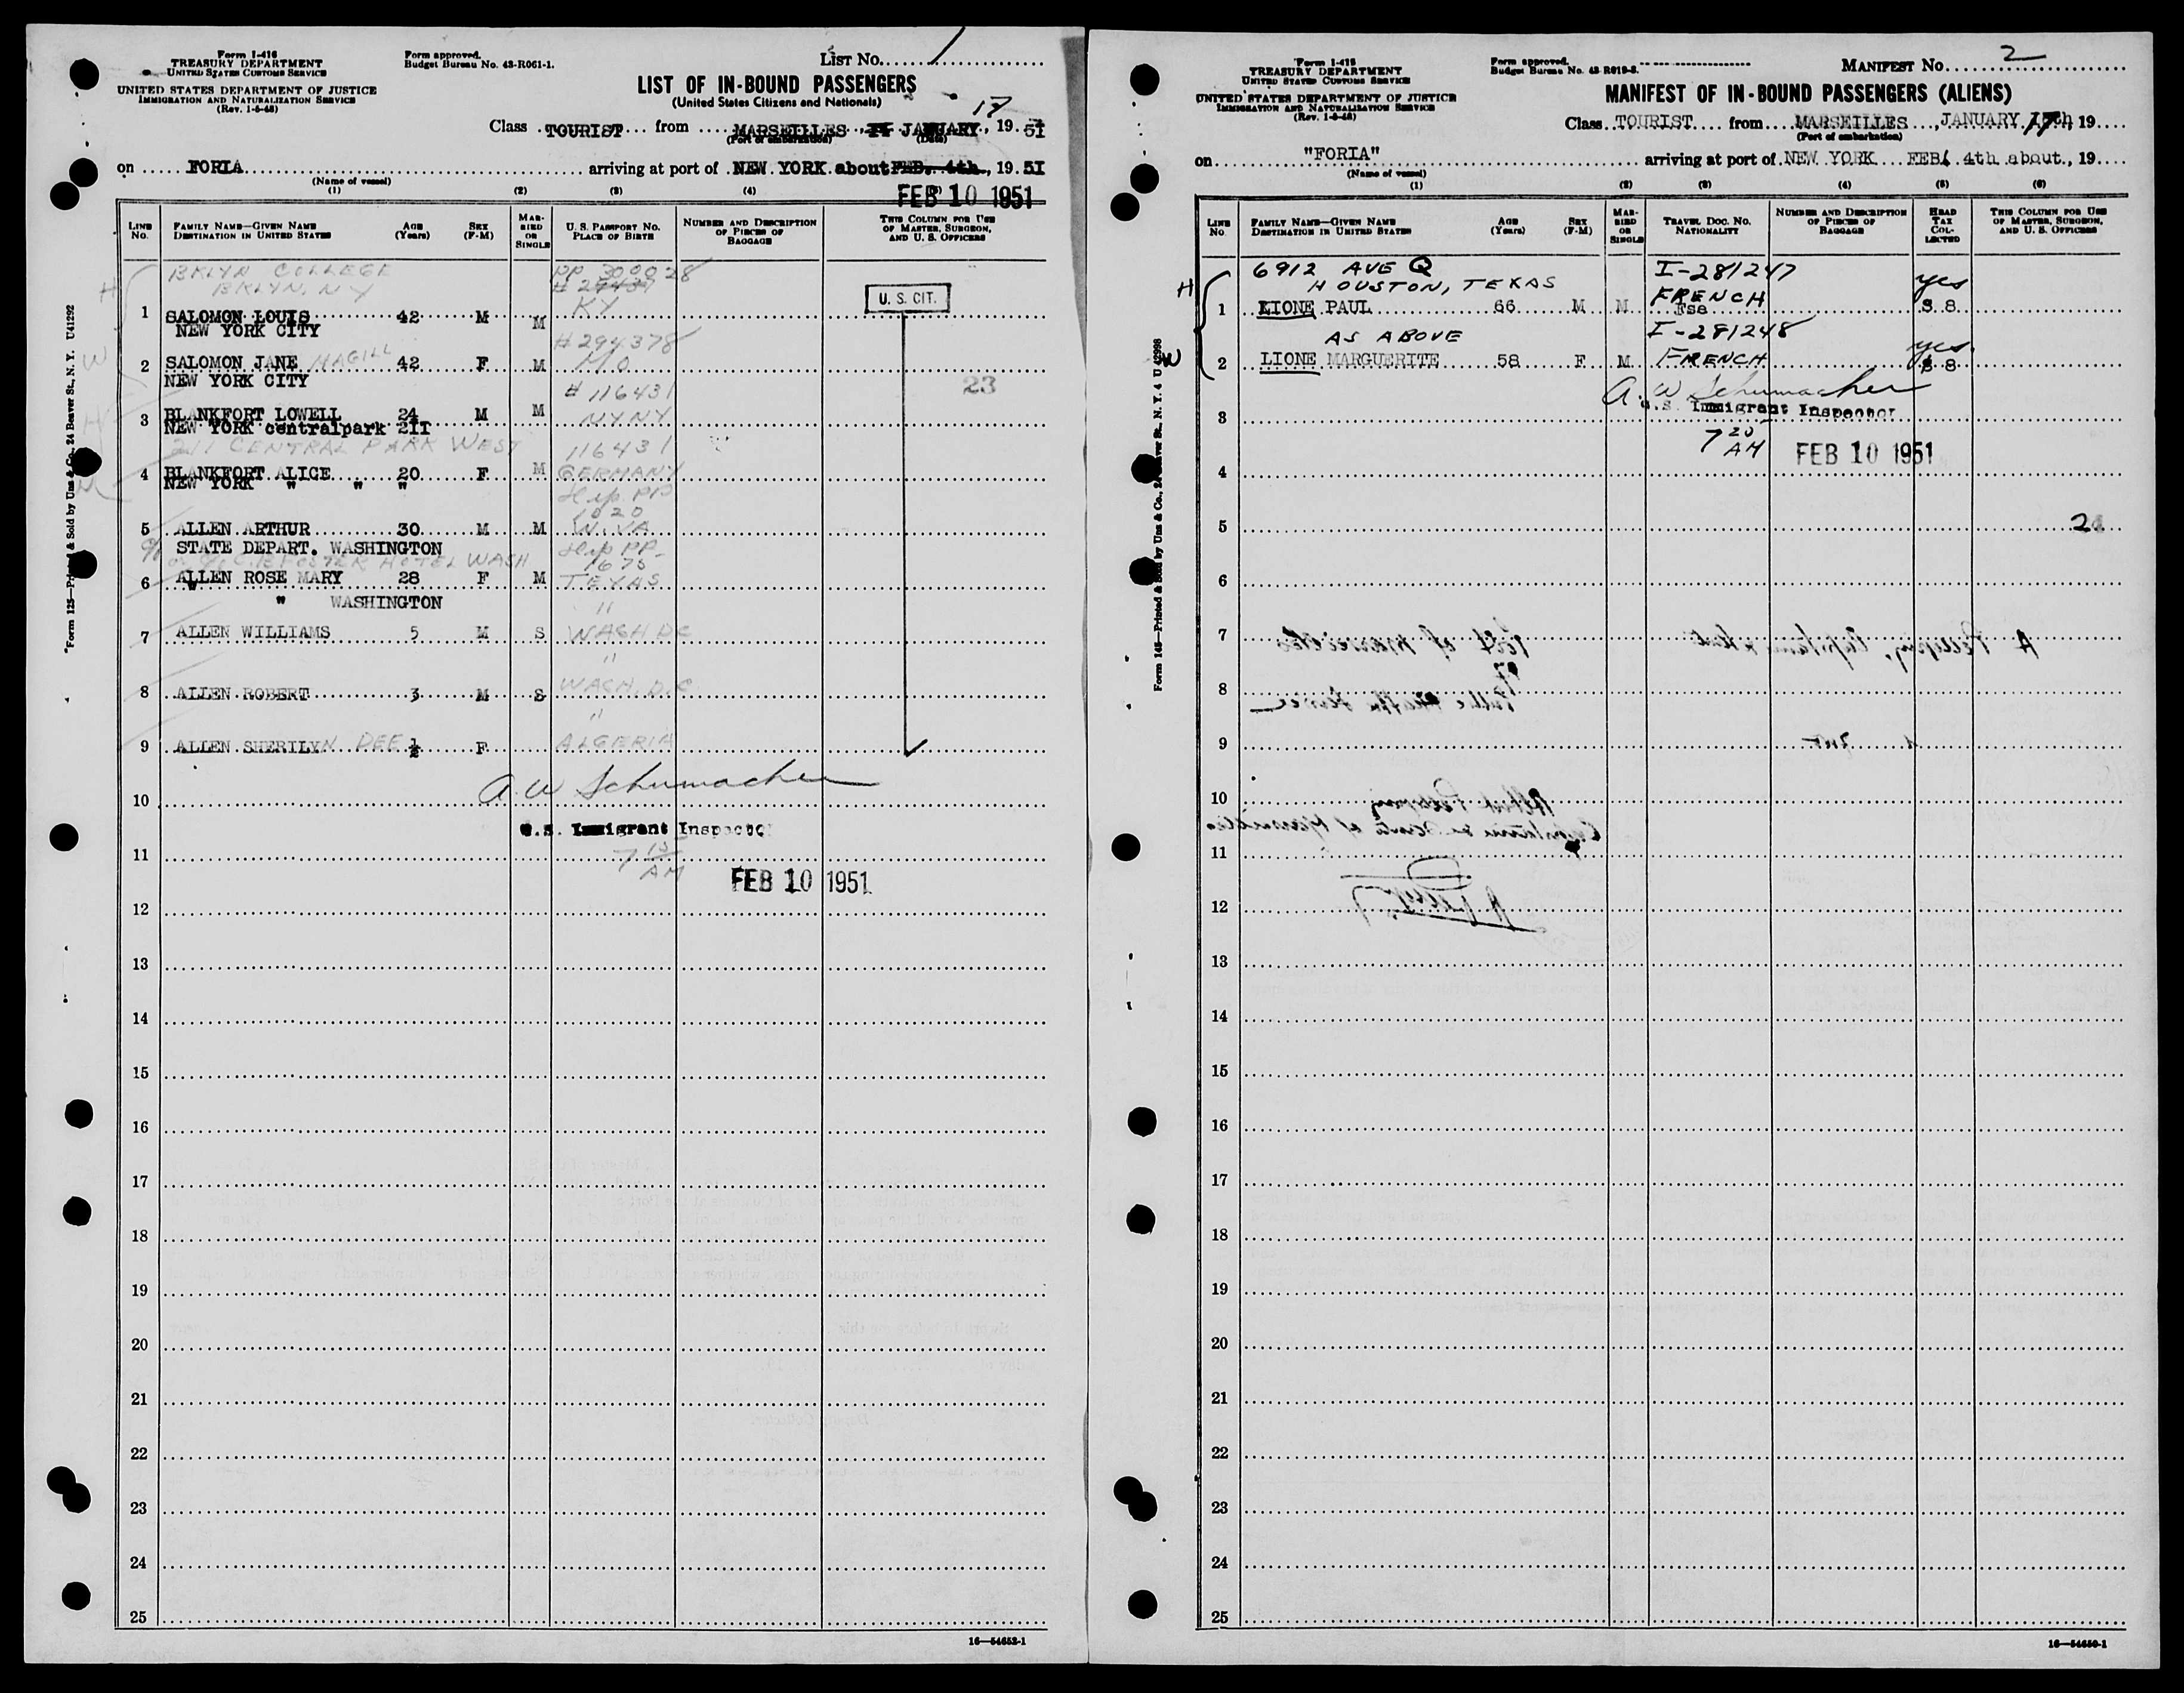 Form I-416
TREASURY DEPARTMENT
UNITED STATES CUSTOMS SERVICE
UNITED STATES DEPARTMENT OF JUSTICE
IMMIGRATION AND NATURALIZATION SERVICE
(Rev. 1-5-48)
Form approved.
Budget Bureau No. 43-R061-1.
LIST NO. 1
LIST OF IN-BOUND PASSENGERS
(United States Citizens and Nationals)
Class TOURIST from MARSEILLES, 17 JANUARY, 1951
(Port of embarkation) (Date)
on FORIA arriving at port of NEW YORK about FEB. 4th, 1951
(Name of vessel)
FEB 10 1951
(1) (2) (3) (4)
LINE NO. FAMILY NAME—GIVEN NAME DESTINATION IN UNITED STATES AGE (Years) SEX (F-M) MARRIED OR SINGLE U. S. PASSPORT NO. PLACE OF BIRTH NUMBER AND DESCRIPTION OF PIECES OF BAGGAGE THIS COLUMN FOR USE OF MASTER, SURGEON, AND U. S. OFFICERS
BKLYN COLLEGE PP 300028
BKLYN, NY
1 SALOMON LOUIS 42 M M KY U. S. CIT.
NEW YORK CITY #294378
2 SALOMON JANE MAGILL 42 F M MO
NEW YORK CITY 23
#116431
3 BLANKFORT LOWELL 24 M M NY NY
NEW YORK centralpark 2II
211 CENTRAL PARK WEST 116431
4 BLANKFORT ALICE 20 F M GERMANY
NEW YORK " " "
Dip PP
1020
5 ALLEN ARTHUR 30 M M W. VA
STATE DEPART. WASHINGTON Dip PP
HOTEL WASH 1675
6 ALLEN ROSE MARY 28 F M TEXAS
" WASHINGTON
"
7 ALLEN WILLIAMS 5 M S WASH DC
"
8 ALLEN ROBERT 3 M S WASH. D.C
"
9 ALLEN SHERILYN DEE ½ F ALGERIA
A W Schumacher
10
U.S. Immigrant Inspector
11 7 15 AM
FEB 10 1951
12
13
14
15
16
17
18
19
20
21
22
23
24
25
16—54652-1
Form 125—Printed & Sold by Unz & Co., 24 Beaver St., N. Y. U41292
Form I-415
TREASURY DEPARTMENT
UNITED STATES CUSTOMS SERVICE
UNITED STATES DEPARTMENT OF JUSTICE
IMMIGRATION AND NATURALIZATION SERVICE
(Rev. 1-5-48)
Form approved.
Budget Bureau No. 43-R019-3.
MANIFEST NO. 2
MANIFEST OF IN-BOUND PASSENGERS (ALIENS)
Class TOURIST from MARSEILLES, JANUARY 17th, 19
(Port of embarkation)
on "FORIA" arriving at port of NEW YORK FEB. 4th about, 19
(Name of vessel)
(1) (2) (3) (4) (5) (6)
LINE NO. FAMILY NAME—GIVEN NAME DESTINATION IN UNITED STATES AGE (Years) SEX (F-M) MARRIED OR SINGLE TRAVEL DOC. NO. NATIONALITY NUMBER AND DESCRIPTION OF PIECES OF BAGGAGE HEAD TAX COLLECTED THIS COLUMN FOR USE OF MASTER, SURGEON, AND U. S. OFFICERS
6912 AVE Q I-281247 yes
HOUSTON, TEXAS FRENCH
1 LIONE PAUL 66 M M $ 8
AS ABOVE I-281248 yes
2 LIONE MARGUERITE 58 F M FRENCH $ 8
A. W Schumacher
U.S. Immigrant Inspector
3
7 20 AM FEB 10 1951
4
5
6
7
8
9
10
11
12
13
14
15
16
17
18
19
20
21
22
23
24
25
16—54650-1
Form 145—Printed & Sold by Unz & Co., 24 Beaver St., N. Y. 4 U 42998